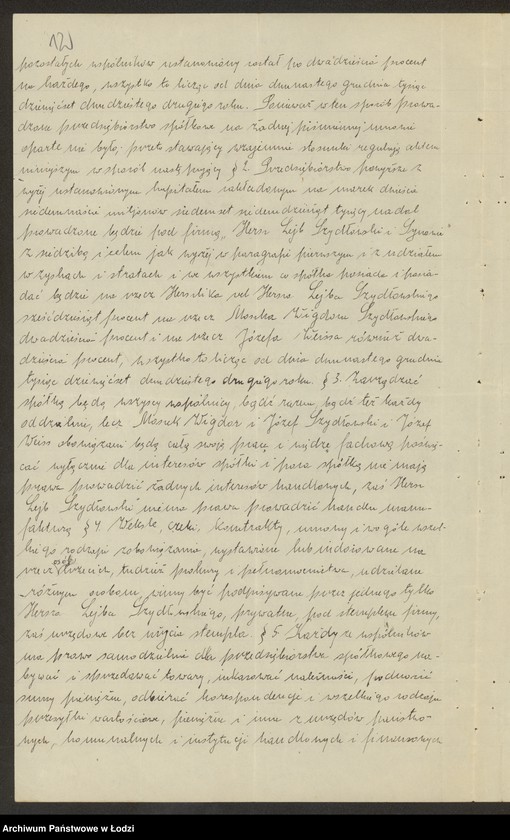 12
pozostałych wspólników ustanowiony został po dwadzieścia procent
na każdego, wszystko to licząc od dnia dwunastego grudnia tysiąc
dziewięćset dwudziestego drugiego roku. Ponieważ w ten sposób prowa-
dzone przedsiębiorstwo spółkowe na żadnej piśmiennej umowie
oparte nie było, przeto stawający wzajemne stosunki regulują aktem
niniejszym w sposób następujący § 2. Przedsiębiorstwo powyższe z
wyżej ustanowionym kapitałem zakładowym na marek dwieście
siedemnaście miljonów siedemset siedemdziesiąt tysięcy nadal
prowadzone będzie pod firmą „Hersz Lejb Szydłowski i Synowie"
z siedzibą i celem jak wyżej w paragrafie pierwszym i z udziałem
w zyskach i stratach i we wszystkiem co spółka posiada i posia-
dać będzie na rzecz Herszlika vel Hersza Lejba Szydłowskiego
sześćdziesiąt procent na rzecz Moszka Wigdora Szydłowskiego
dwadzieścia procent i na rzecz Józefa Weissa również dwa-
dzieścia procent, wszystko to licząc od dnia dwunastego grudnia
tysiąc dziewięćset dwudziestego drugiego roku. § 3. Zarządzać
spółką będą wszyscy wspólnicy, bądź razem, bądź też każdy
oddzielnie, lecz Moszek Wigdor i Józef Szydłowski i Józef
Weiss obowiązani będą całą swoją pracę i wiedzę fachową poświę-
cać wyłącznie dla interesów spółki i poza spółką nie mają
prawa prowadzić żadnych interesów handlowych, zaś Hersz
Lejb Szydłowski nie ma prawa prowadzić handlu manu-
fakturą § 4. Weksle, czeki, kontrakty, umowy i wogóle wszel-
kiego rodzaju zobowiązania, wystawione lub indosowane na
rzecz osób trzecich, tudzież prokury i pełnomocnictwa, udzielane
różnym osobom, winny być podpisywane przez jednego tylko
Hersza Lejba Szydłowskiego, prywatne, pod stemplem firmy,
zaś urzędowe bez użycia stempla. § 5 Każdy ze wspólników
ma prawo samodzielnie dla przedsiębiorstwa spółkowego na-
bywać i sprzedawać towary, inkasować należności, podnosić
sumy pieniężne, odbierać korespondencję i wszelkiego rodzaju
przesyłki wartościowe, pieniężne i inne z urzędów państwo-
wych, komunalnych i instytucji handlowych i finansowych
Archiwum Państwowe w Łodzi